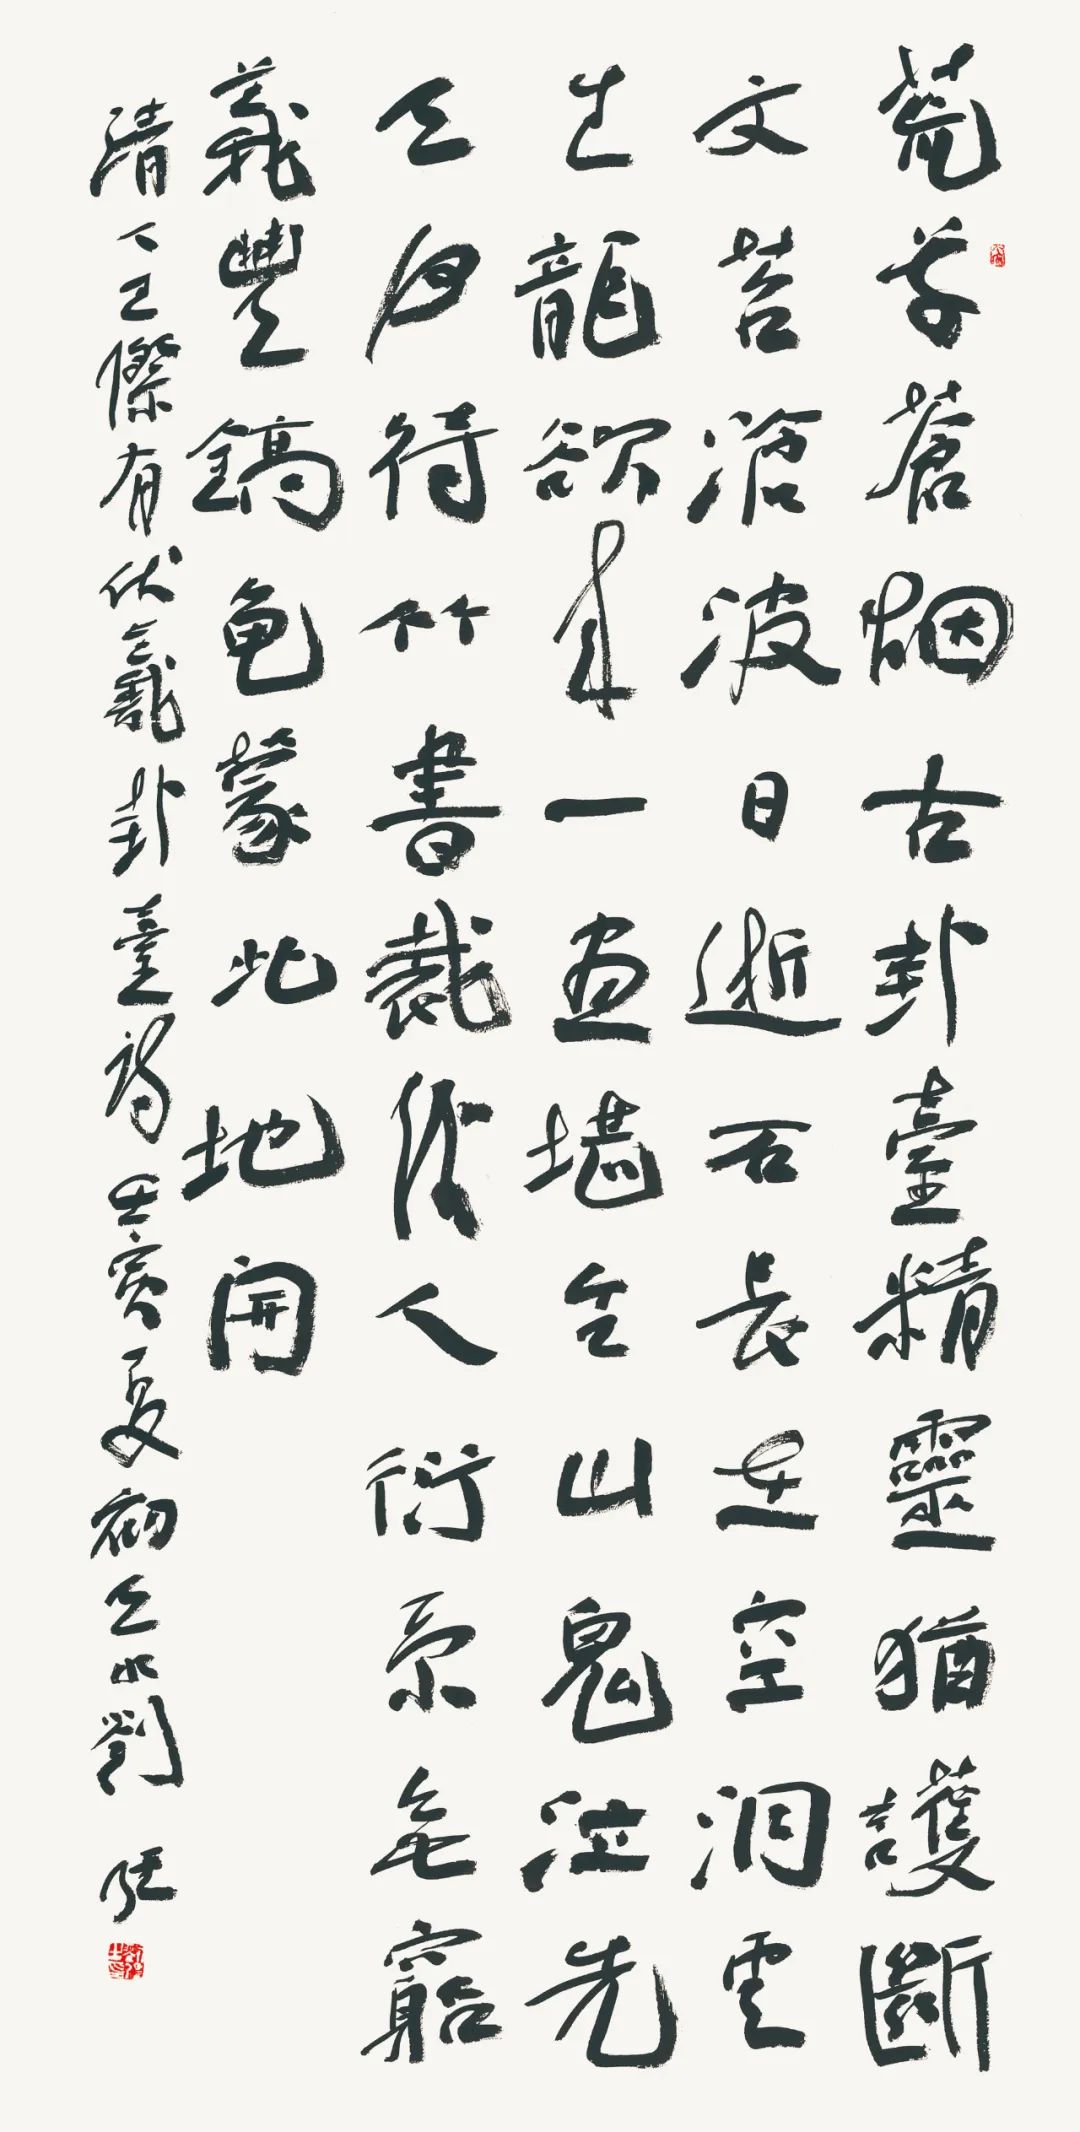 荒草蒼烟古卦臺精靈猶護斷
文苔滄波日逝石長在空洞雲
生龍欲來一畫堪令山鬼泣先
天何待竹書裁後人衍系無窮
義豐鎬龜蒙此地開
清人王際有伏羲卦臺詩壬寅夏初天水劉